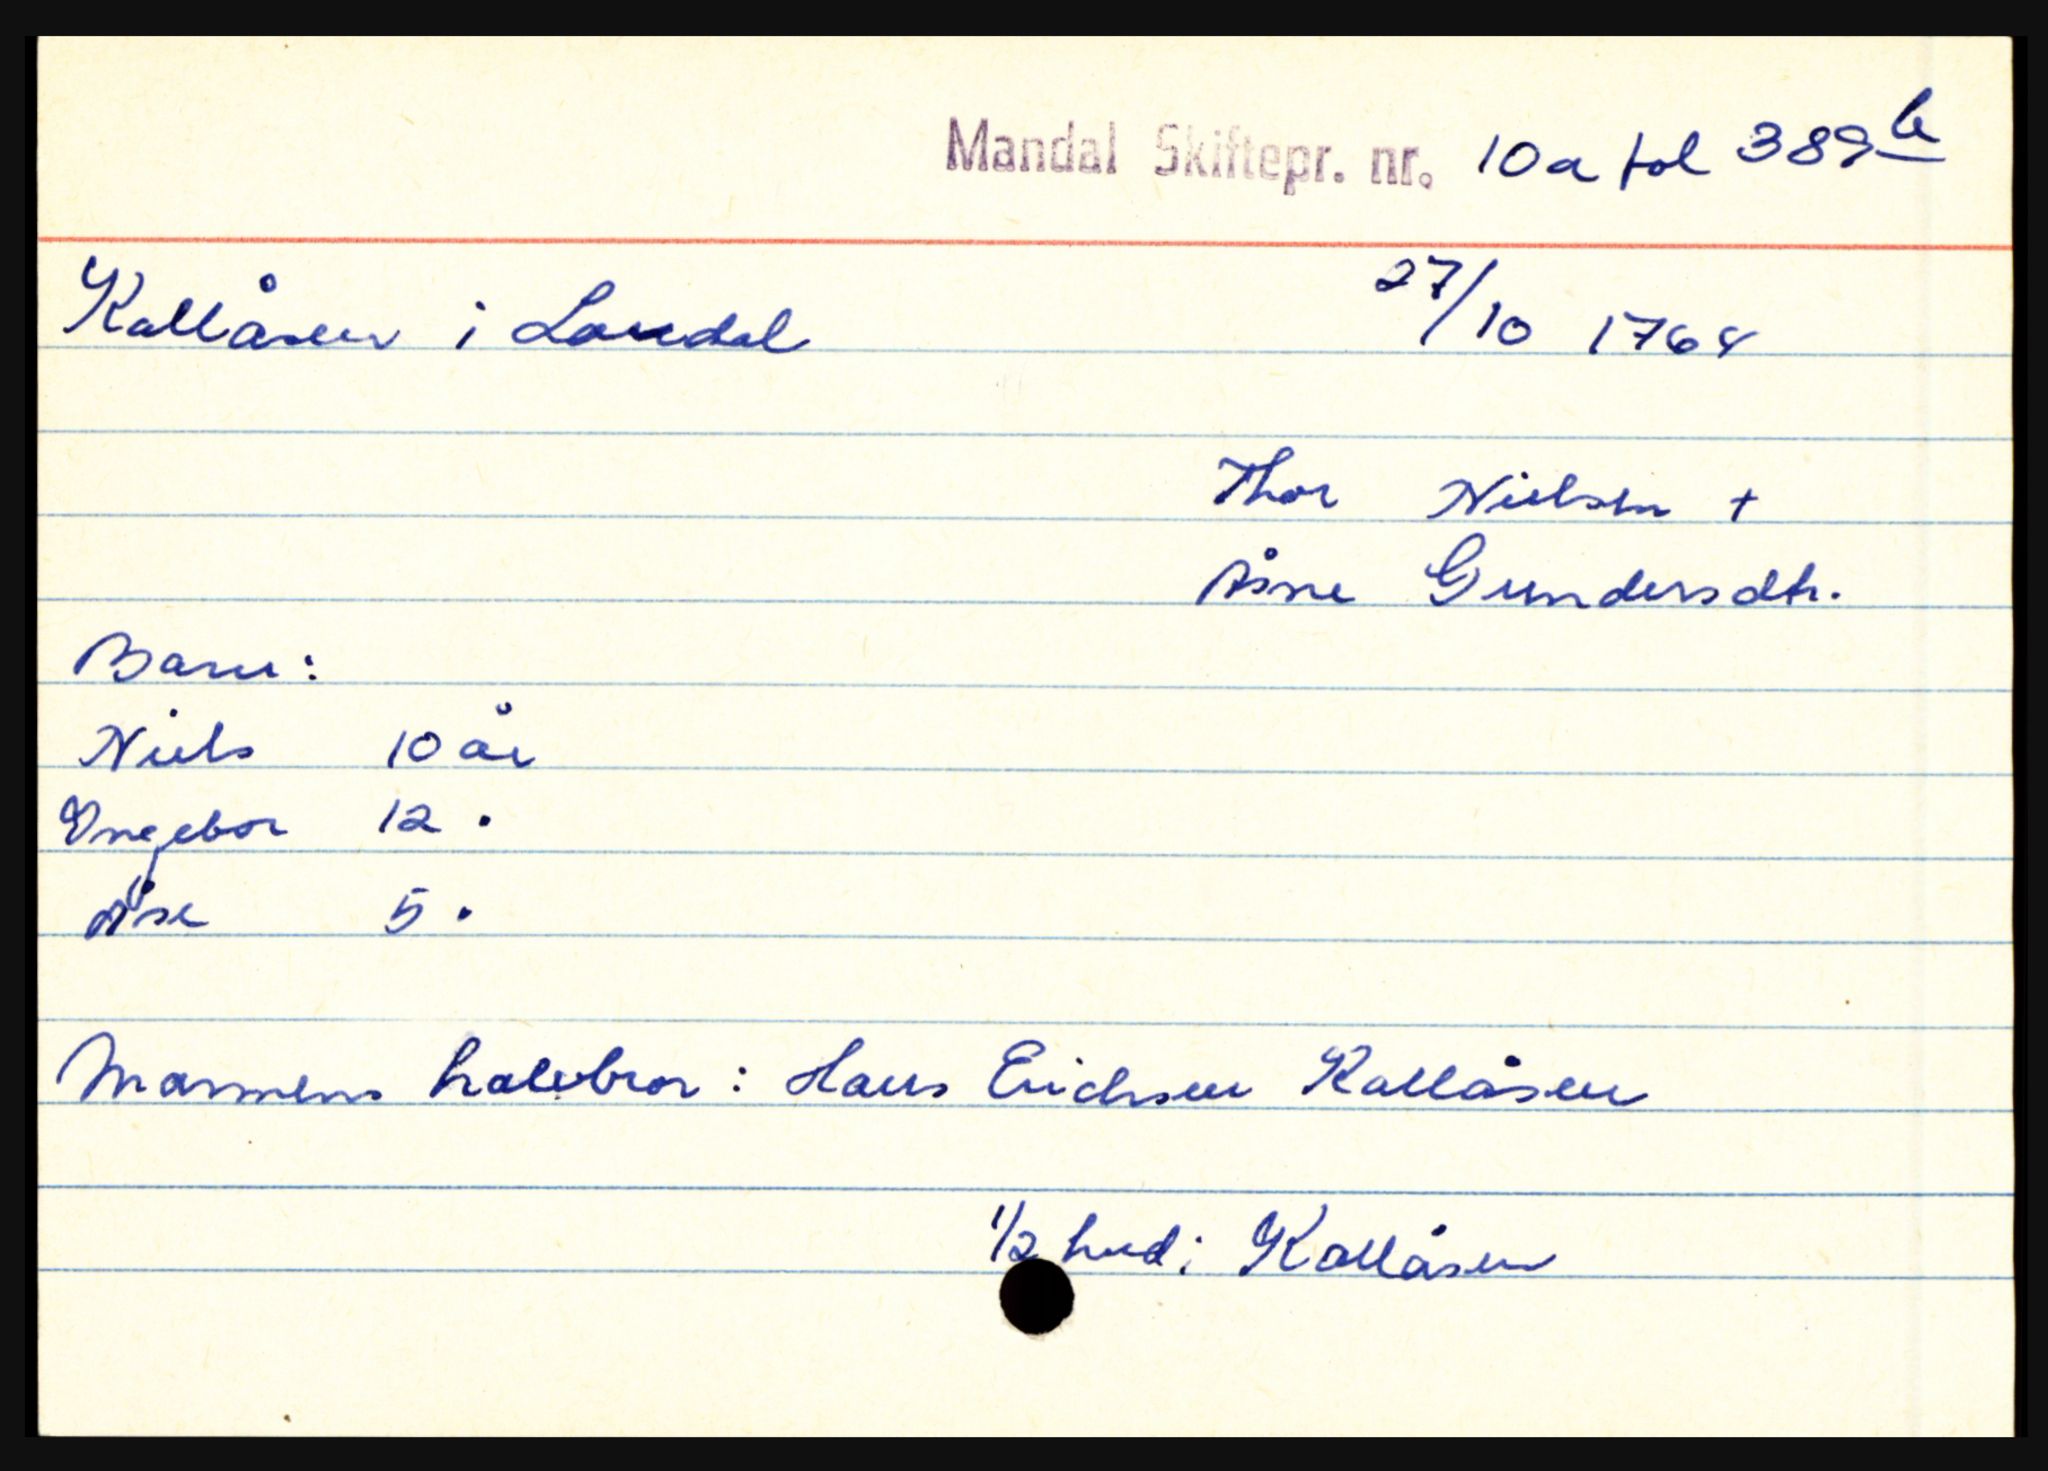 Mandal Skiftepr. nr. 10a fol 389b
Kallåsen i Laudal 27/10 1764
Thor Nielsen +
Åsne Gundersdtr.
Barn:
Niels 10 år
Engebor 12 "
Åse 5 "
Mannens halvbror: Hans Erichsen Kallåsen
1/2 hud i Kallåsen